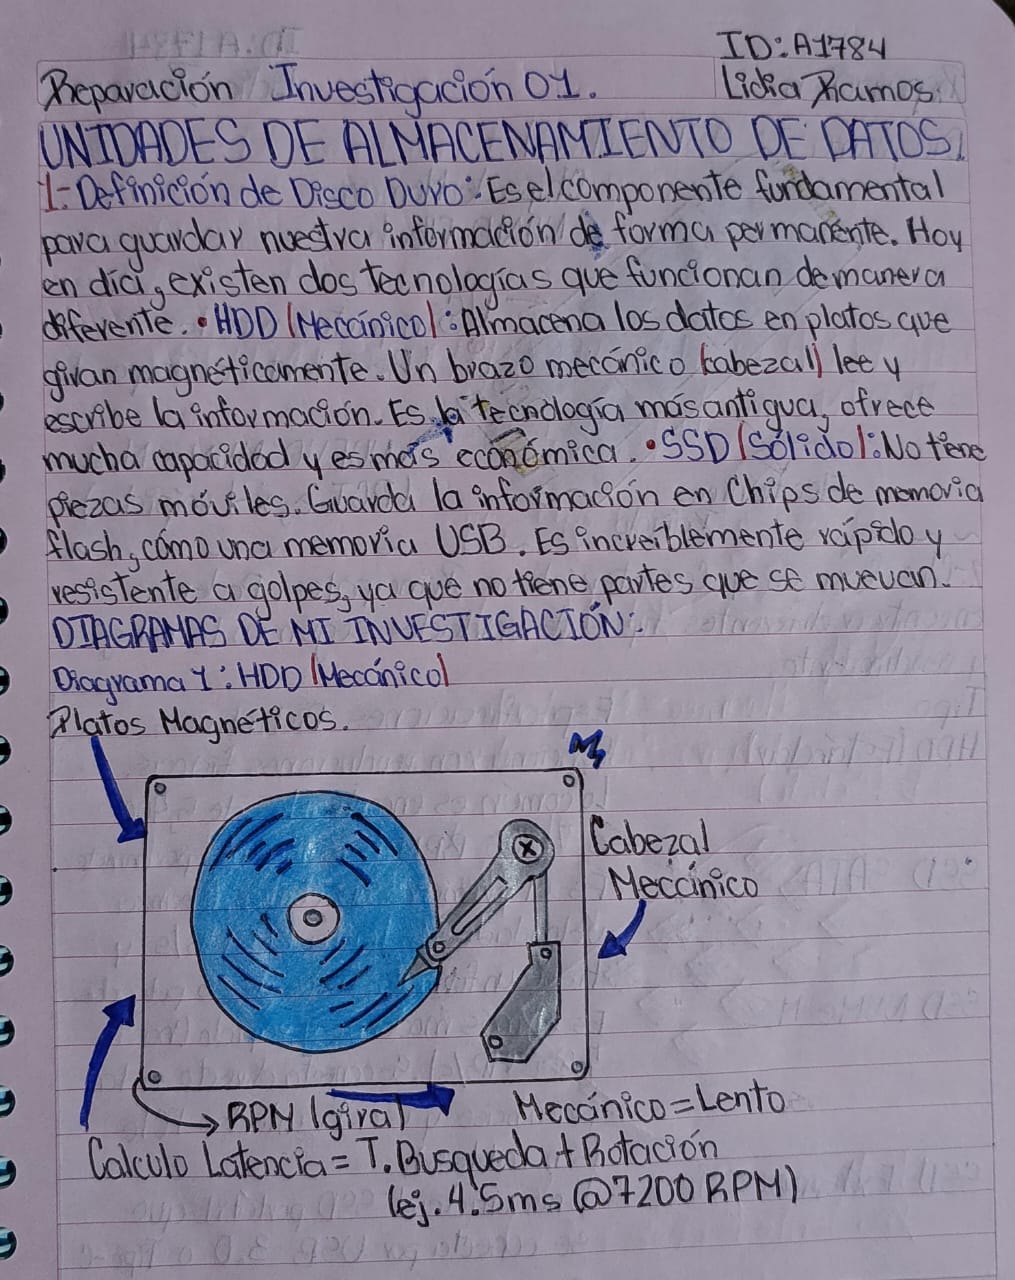 ID: A1784
Reparación Investigación 01.
Lidia Ramos.
UNIDADES DE ALMACENAMIENTO DE DATOS.
1- Definición de Disco Duro: Es el componente fundamental
para guardar nuestra información de forma permanente. Hoy
en día, existen dos tecnologías que funcionan de manera
diferente. • HDD (Mecánico): Almacena los datos en platos que
giran magnéticamente. Un brazo mecánico (cabezal) lee y
escribe la información. Es la tecnología más antigua, ofrece
mucha capacidad y es más económica. • SSD (Sólido): No tiene
piezas móviles. Guarda la información en Chips de memoria
flash, cómo una memoria USB. Es increíblemente rápido y
resistente a golpes, ya que no tiene partes que se muevan.
DIAGRAMAS DE MI INVESTIGACIÓN:
Diagrama 1: HDD (Mecánico)
Platos Magnéticos.
Cabezal
Mecánico
RPM (gira)
Mecánico = Lento
Calculo Latencia = T. Busqueda + Rotación
(ej. 4.5ms @7200 RPM)